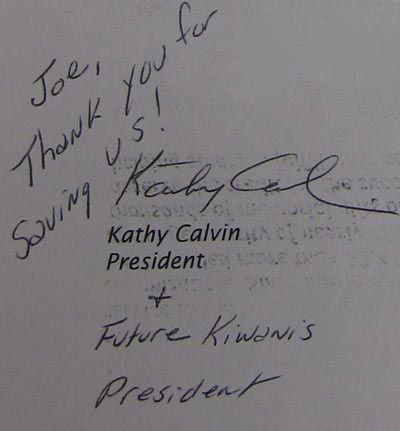 Joe,
Thank you for
Saving us!
Kathy Cal
Kathy Calvin
President
+
Future Kiwanis
President